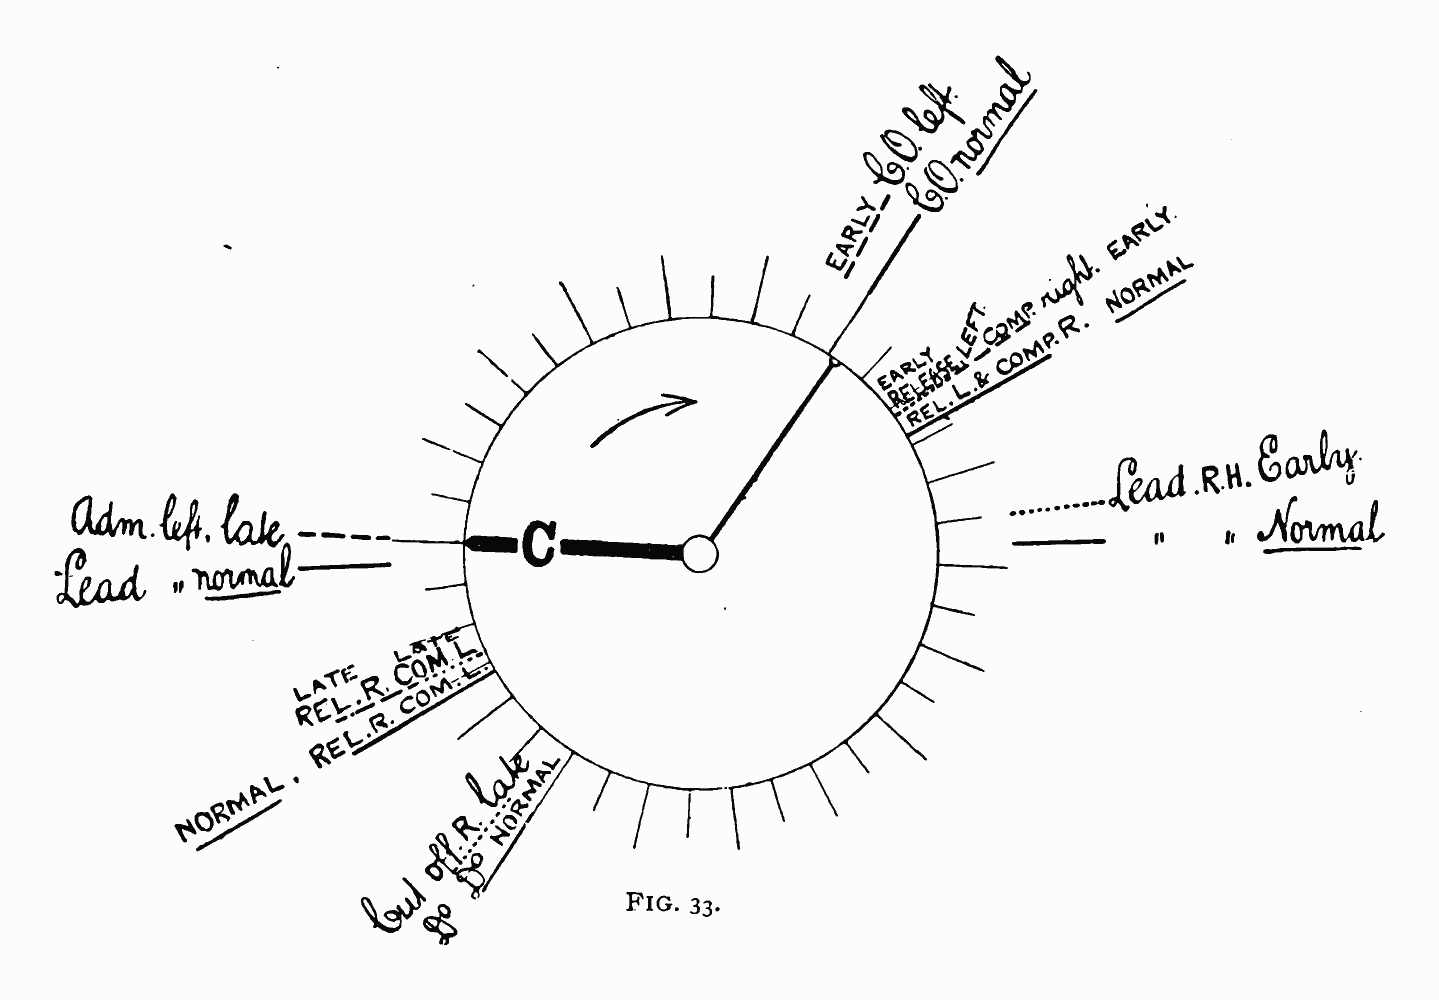 EARLY C.O. left.
C.O. normal
EARLY
RELEASE LEFT. COMP. right. EARLY.
REL. L. & COMP. R. NORMAL
Lead. R.H. Early.
" " Normal
C
Adm. left. late
Lead " normal
LATE LATE
REL. R. COM. L.
NORMAL. REL. R. COM. L.
Cut off. R. late
Do Do NORMAL
FIG. 33.